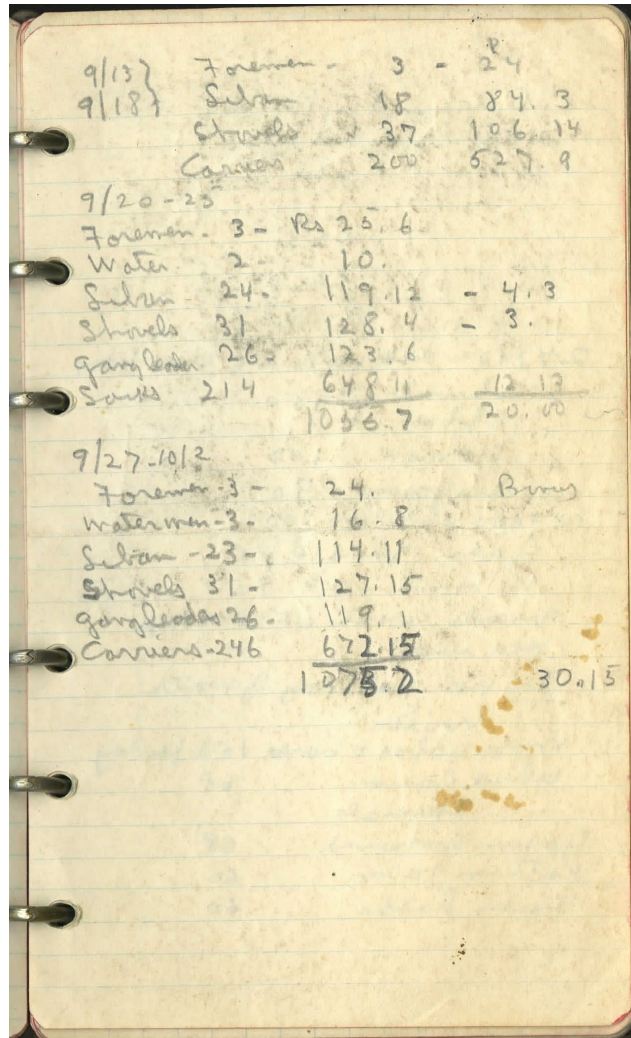 9/13} Foremen - 3 - 24
9/18} Seban 18 84.3
Shovels 37 106.14
Carriers 200 527.9
9/20-25
Foremen - 3 - Rs 25.6
Water 2 - 10.
Seban 24 - 119.12 - 4.3
Shovels 31 128.4 - 3.
gang leader 26 - 123.6
214 648.11 12.13
1056.7 20.00
9/27-10/2
Foremen - 3 - 24. Bonus
Watermen - 3 - 16.8
Seban - 23 - 114.11
Shovels 31 - 127.15
gang leaders 26 - 119.1
Carriers - 246 672.15
1075.2 30.15